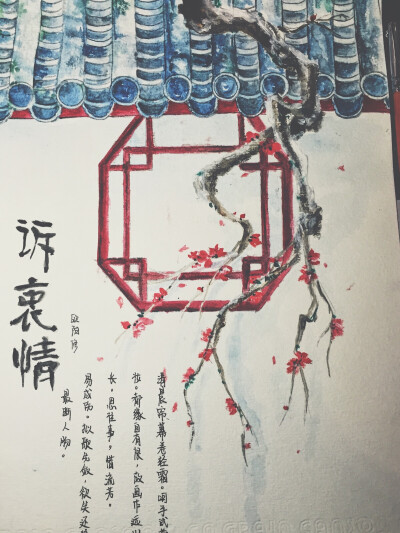 诉衷情
欧阳修
清晨帘幕卷轻霜。呵手试
妆。都缘自有恨,故画作远
长。思往事,惜流芳。
易成伤。拟歌先敛,欲笑还
最断人肠。